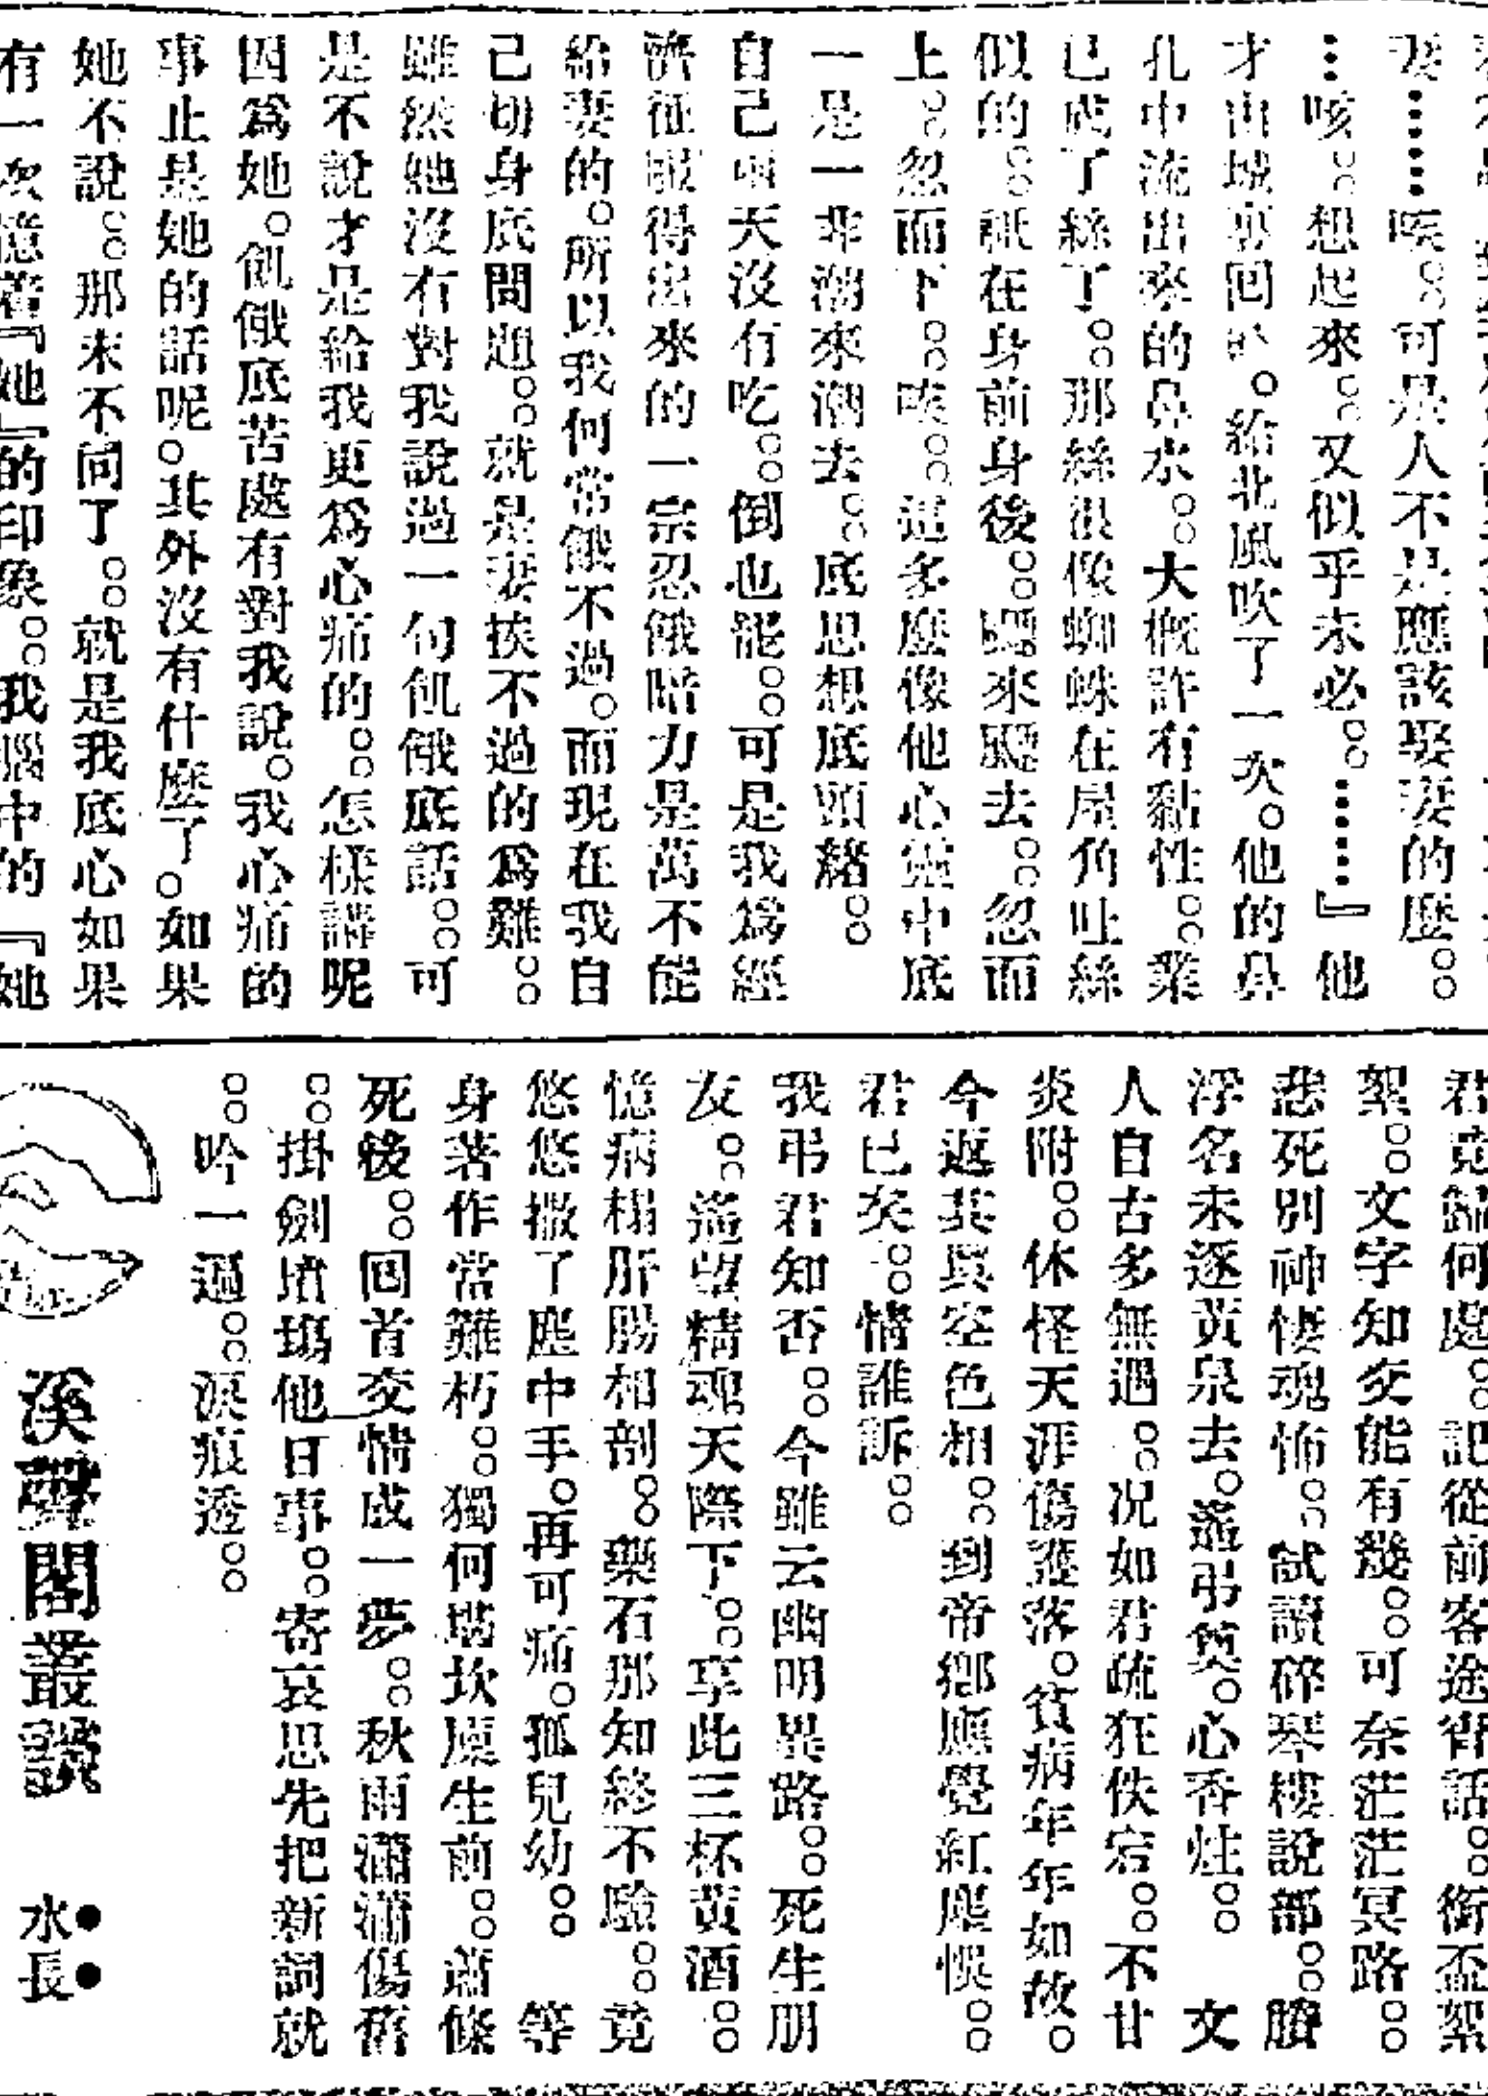 妻……唉。。可是人不是應該娶妻的麽。。
…咳。。想起來。。又似乎未必。。……』他
才由城裏回。給北風吹了一次。他的鼻
孔中流出來的鼻水。。大概許有黏性。。業
已成了絲了。。那絲很像蜘蛛在屋角吐絲
似的。。祇在身前身後。。飄來飄去。。忽而
上。。忽而下。。唉。。這多麽像他心靈中底
一是一非潮來潮去。。底思想底頭緒。。
自己兩天沒有吃。。倒也罷。。可是我爲經
濟征服得出來的一宗忍餓暗力是萬不能
給妻的。所以我何常餓不過。而現在我自
己切身底問題。。就是妻挨不過的爲難。。
雖然她沒有對我說過一句飢餓底話。。可
是不說才是給我更爲心痛的。。怎樣講呢
因爲她。飢餓底苦處有對我說。我心痛的
事止是她的話呢。其外沒有什麽了。如果
她不說。。那末不同了。。就是我底心如果
有一次憶着『她』的印象。。我腦中的『她
君竟歸何處。。記從前客途宵話。。銜盃絮
絮。。文字知交能有幾。。可奈茫茫冥路。。
悲死別神悽魂怖。。試讀碎琴樓說部。。賸文
浮名未逐黃泉去。遥弔奠。心香炷。。
人自古多無遇。。况如君疏狂佚宕。。不甘
炎附。。休怪天涯傷濩落。貧病年年如故。
今返其眞空色相。。到帝鄉應覺紅塵悞。。
君已矣。。情誰訴。。
我弔君知否。。今雖云幽明異路。。死生朋
友。。遥望精魂天際下。。享此三杯黃酒。。
憶病榻肝腸相剖。。藥石那知終不驗。。竟
悠悠撒了塵中手。再可痛。孤兒幼。。 等
身著作常難朽。。獨何堪坎凜生前。。蕭條
死後。。回首交情成一夢。。秋雨瀟瀟傷舊
。。掛劍墳塲他日事。。寄哀思先把新詞就
。。吟一過。。淚痕透。。
溪聲閣叢談 水長